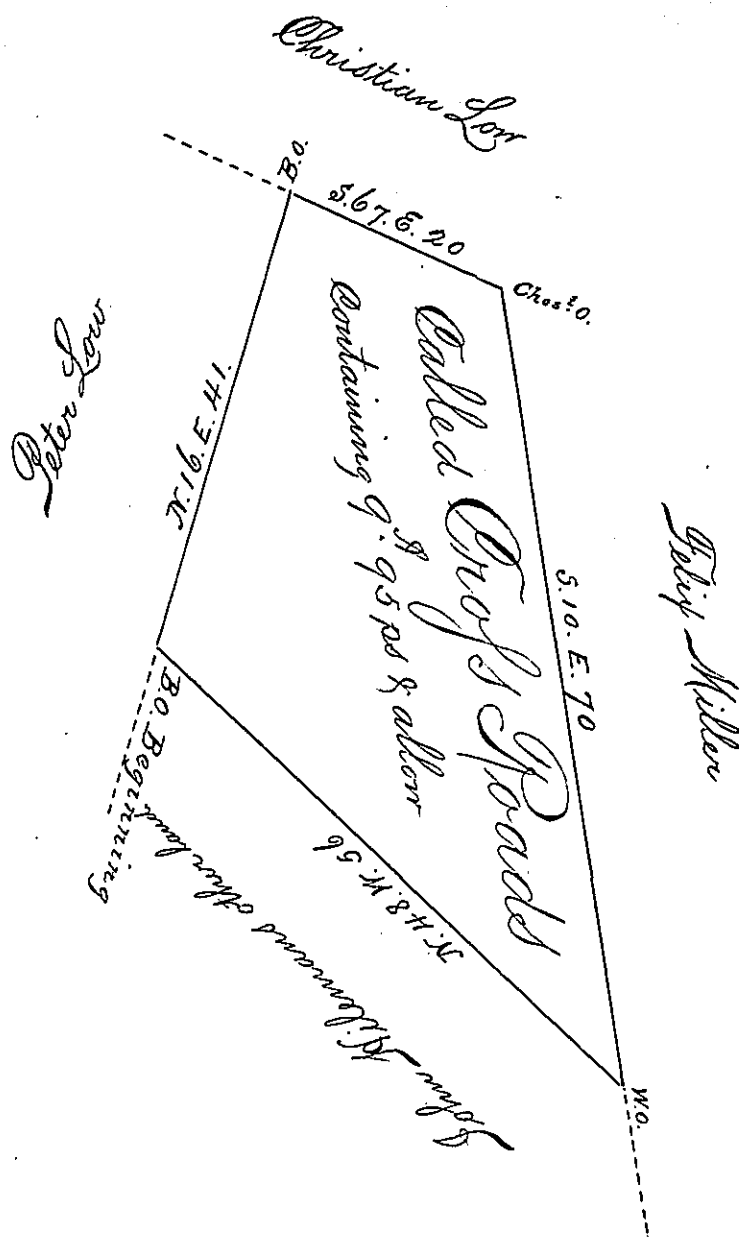 Christian Low
B.O.
S.67.E.20
Ches.t O.
Peter Low
N.16.E.41.
Called Croſs Roads
Containing 9.A 95 ps & allow
S.10.E.70
Felix Miller
B.O. Beginning
N.48.W.56
John Hilemans other land
W.O.